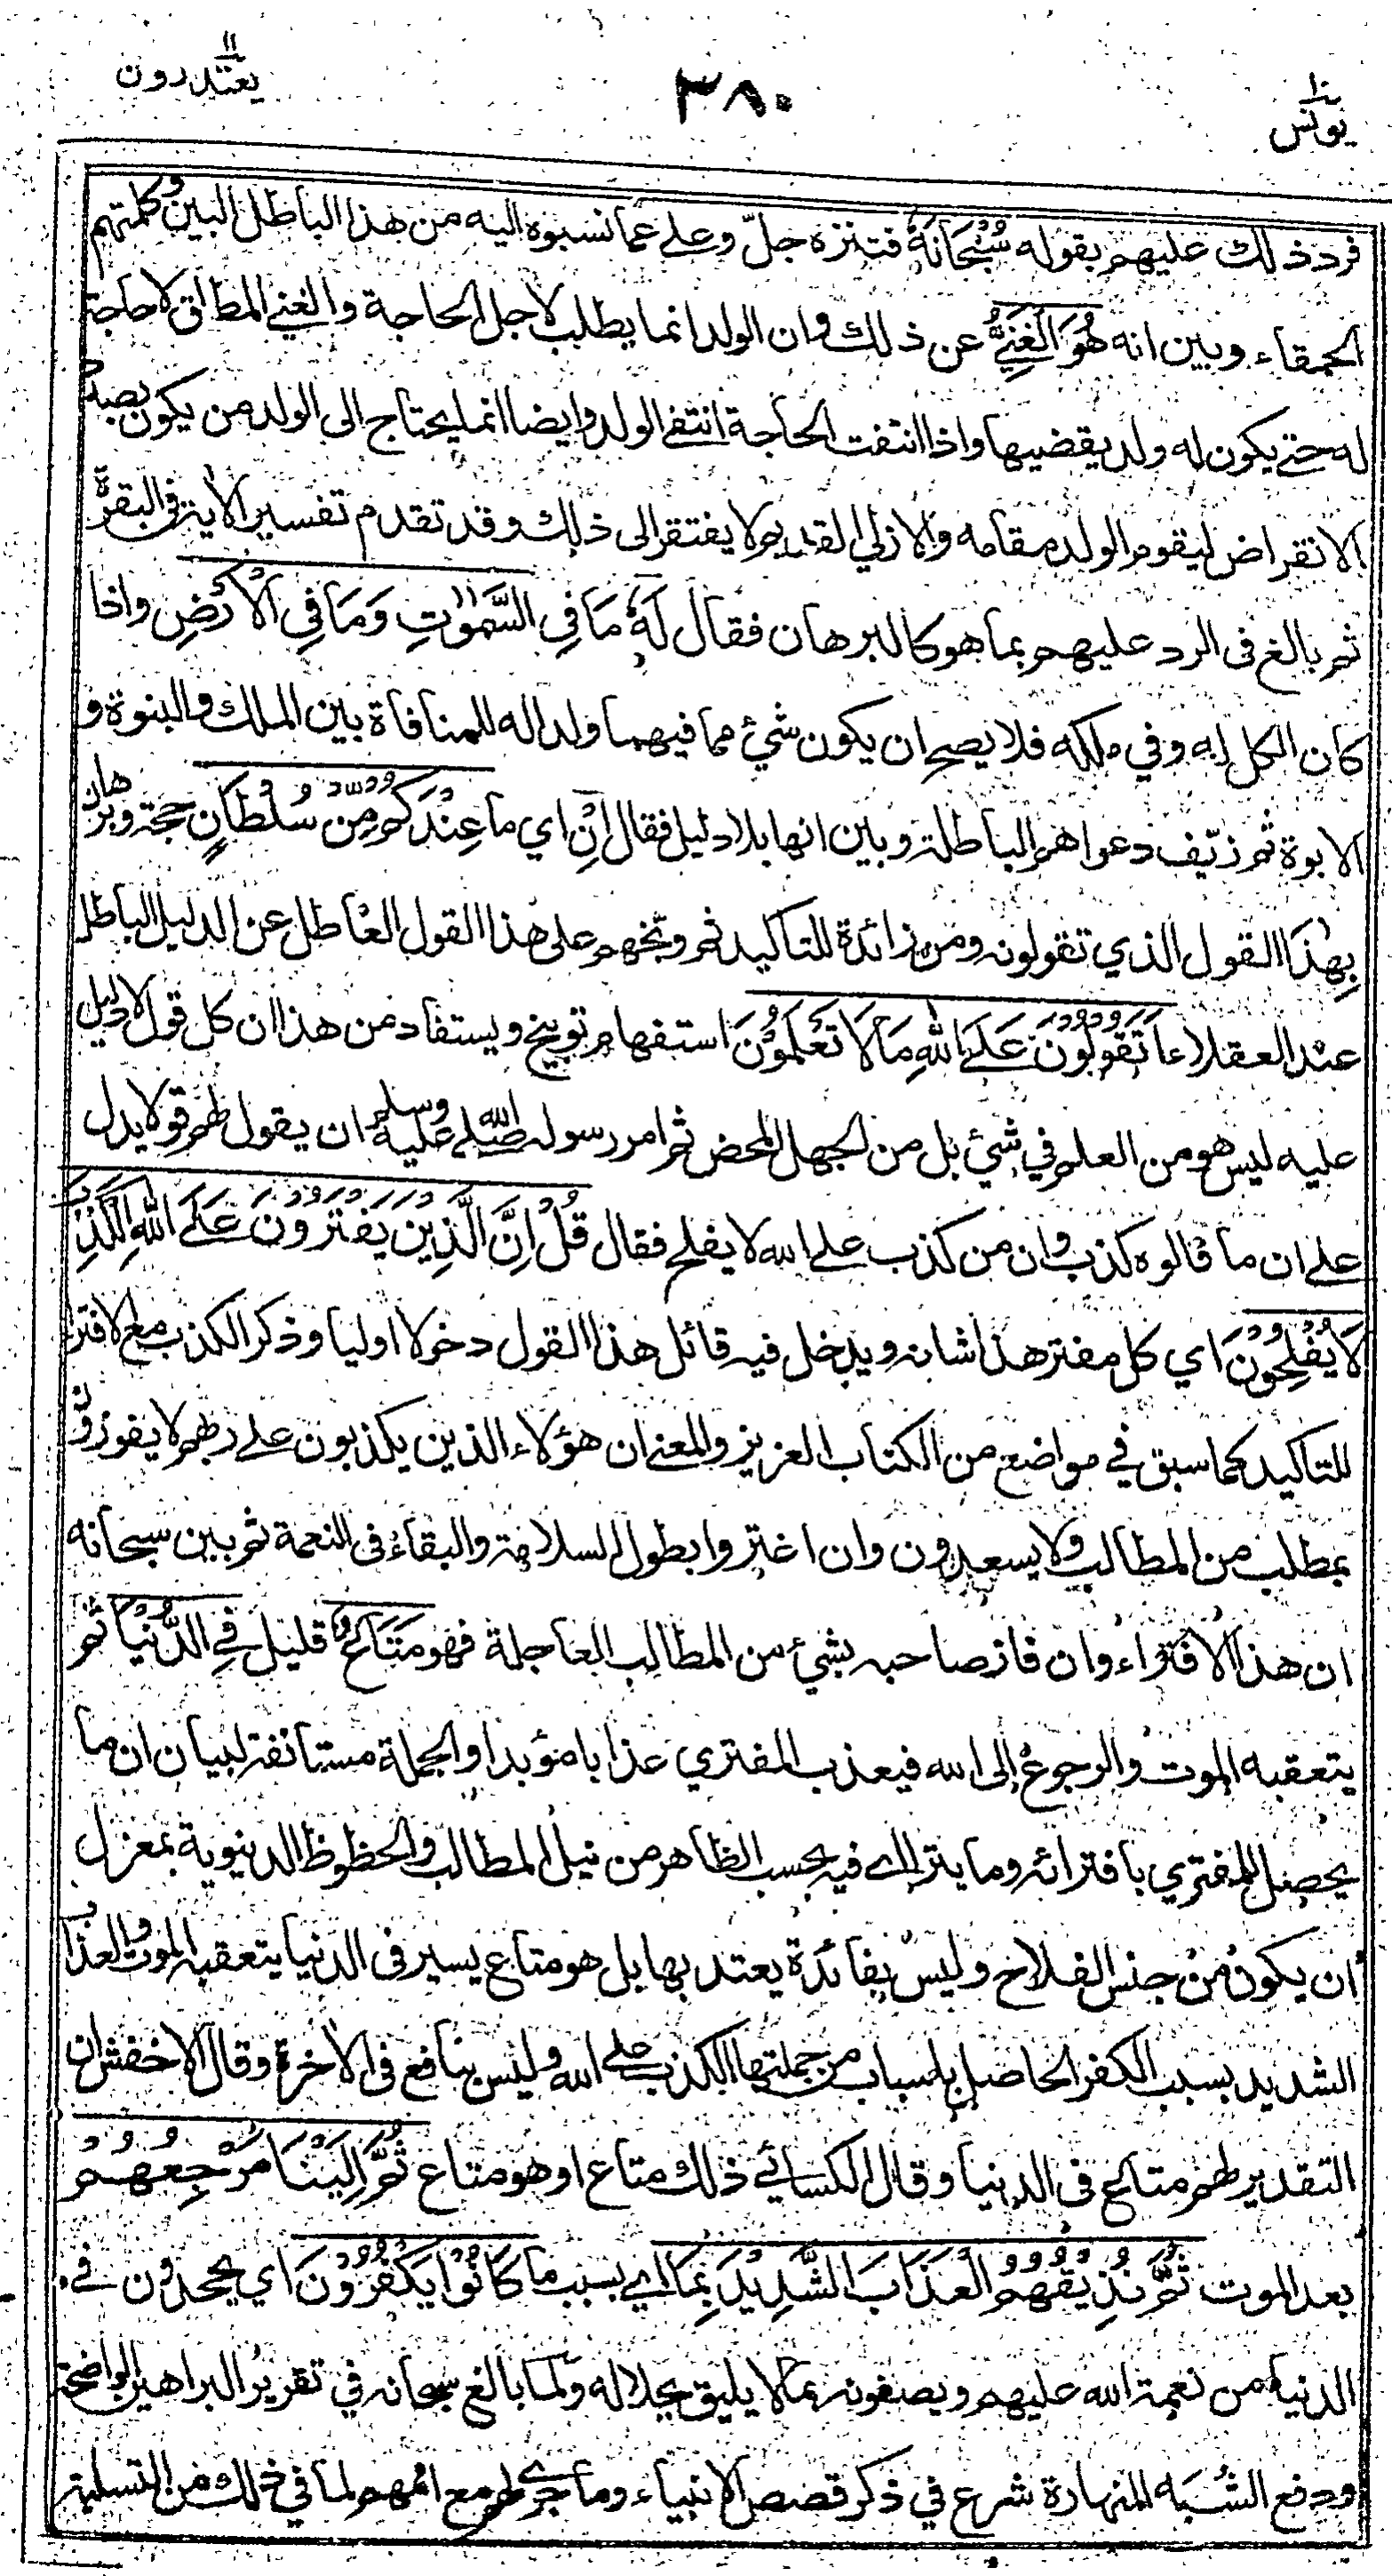 يونس ١٠
٣٨٠
يعتذرون ١١
فرد ذلك عليهم بقوله سُبْحَانَهُ فتنزه جلّ وعلے عما نسبوه اليه من هذا الباطل البين وكلمتهم
الحمقاء وبين انه هُوَ الْغَنِيُّ عن ذلك وان الولد انما يطلب لاجل الحاجة والغني المطلق لا حاجة
له حتے يكون له ولد يقضيها واذا انتفت الحاجة انتفے الولد وايضا انما يحتاج الى الولد من يكون بصدد
الانقراض ليقوم الولد مقامه والازلي القديم لا يفتقر الى ذلك وقد تقدم تفسير الاية فى البقرة
ثم بالغ فى الرد عليهم بما هو كالبرهان فقال لَهُ مَا فِي السَّمٰوٰتِ وَمَا فِي الْأَرْضِ واذا
كان الكل له وفي ملكه فلا يصح ان يكون شيء مما فيهما ولدا له للمنافاة بين الملك والبنوة و
الابوة ثم زيّف دعواهم الباطلة وبين انها بلا دليل فقال اِنْ اي ما عِنْدَكُمْ مِنْ سُلْطَانٍ حجة وبرهان
بِهٰذَا القول الذي تقولونه ومن زائدة للتاكيد ثم وبّخهم على هذا القول العاطل عن الدليل الباطل
عند العقلاء اَتَقُوْلُوْنَ عَلَے اللهِ مَا لَا تَعْلَمُوْنَ استفهام توبيخ ويستفاد من هذا ان كل قول لا دليل
عليه ليس هو من العلم في شيء بل من الجهل المحض ثم امر رسوله صلے الله عليه وسلم ان يقول لهم قولا يدل
علے ان ما قالوه كذب وان من كذب علے الله لا يفلح فقال قُلْ اِنَّ الَّذِيْنَ يَفْتَرُوْنَ عَلَے اللهِ الْكَذِبَ
لَا يُفْلِحُوْنَ اي كل مفتر هذا شانه ويدخل فيه قائل هذا القول دخولا اوليا وذكر الكذب مع الافترا
للتاكيد كما سبق في مواضع من الكتاب العزيز والمعنے ان هؤلاء الذين يكذبون علے ربهم لا يفوزون
بمطلب من المطالب ولا يسعدون وان اغتروا بطول السلامة والبقاء فى النعمة ثم بين سبحانه
ان هذا الافتراء وان فاز صاحبه بشيء من المطالب العاجلة فهو مَتَاعٌ قليل فِے الدُّنْيَا ثم
يتعقبه الموت والرجوع الى الله فيعذب المفتري عذابا مؤبدا والجملة مستانفة لبيان ان ما
يحصل للمفتري بافترائه وما يترااے فيه بحسب الظاهر من نيل المطالب والحظوظ الدنيوية بمعزل
ان يكون من جنس الفلاح وليس بفائدة يعتد بها بل هو متاع يسير فى الدنيا يتعقبه الموت والعذاب
الشديد بسبب الكفر الحاصل باسباب من جملتها الكذب علے الله وليس بنافع فى الاخرة وقال الاخفش ان
التقدير لهم متاع فى الدنيا وقال الكسائے ذلك متاع او هو متاع ثُمَّ اِلَيْنَا مَرْجِعُهُمْ
بعد الموت ثُمَّ نُذِيْقُهُمُ الْعَذَابَ الشَّدِيْدَ بِمَا اے بسبب ما كَانُوْا يَكْفُرُوْنَ اي يجحدون فے
الدنيا من نعمة الله عليهم ويصفونه بما لا يليق بجلاله ولما بالغ سبحانه في تقرير البراهين الواضحة
ودفع الشُبَه المنهارة شرع في ذكر قصص الانبياء وما جرے لهم مع اممهم لما في ذلك من التسلية